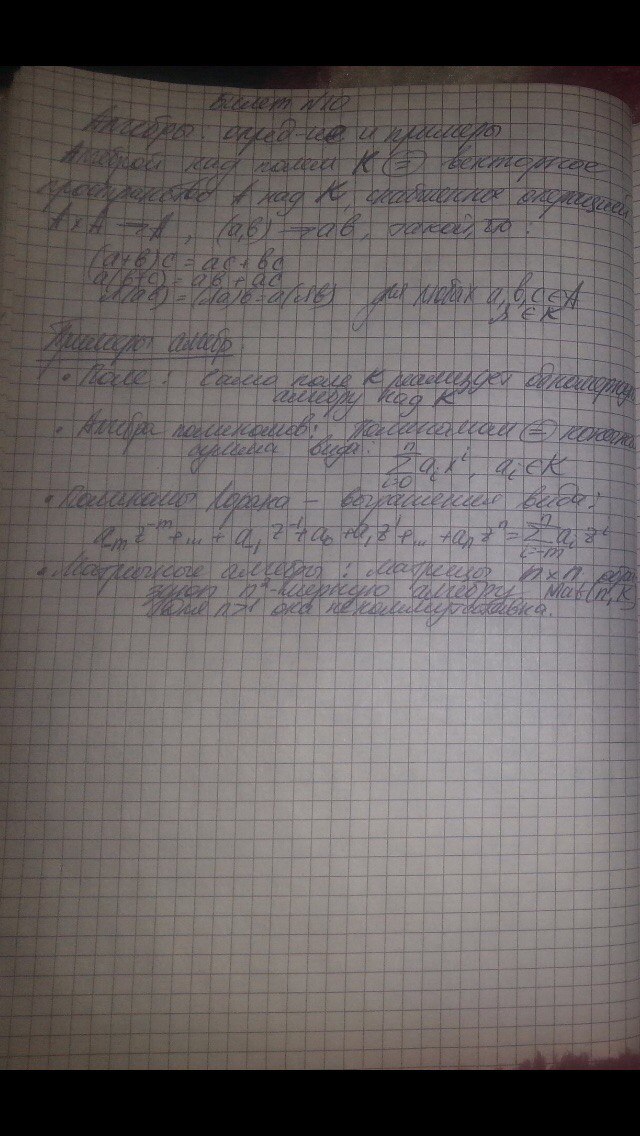 Билет №10
Алгебры. опред-ие и примеры
Алгеброй над полем K (≡) векторное
пространство A над K, снабженное операцией
A×A → A, (a,b) → ab, такой, что:
(a+b)c = ac + bc
a(b+c) = ab + ac
λ(ab) = (λa)b = a(λb) для любых a,b,c ∈ A
λ ∈ K
Примеры алгебр:
• Поле: само поле K реализует одномерную
алгебру над K
• Алгебра полиномов: Полиномом (≡) конечная
сумма вида: \sum_{i=0}^{n} a_i x^i, a_i ∈ K
• Полиномы Лорана – выражения вида:
a_{-m} z^{-m} + ... + a_{-1} z^{-1} + a_0 + a_1 z^1 + ... + a_n z^n = \sum_{i=-m}^{n} a_i z^i
• Матричные алгебры: матрицы n×n обра
зуют n²-мерную алгебру Mat(n,K)
n>1 она некоммутативна.